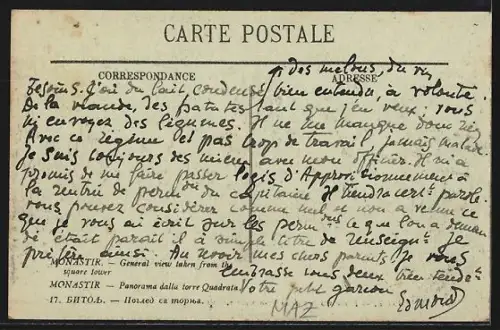 CARTE POSTALE
CORRESPONDANCE
ADRESSE
des melons, du
besoins. J'ai du lait condensé bien entendu à volonté
De la viande, des patates tant que j'en veux, vous
m'envoyez des légumes. Il ne me manque donc rien
Avec ce régime et pas trop de travail jamais malade.
Je suis toujours des mieux avec mon officier. Il m'a
promis de me faire passer logis d'Approvisionnement à
la rentrée de perm du capitaine. Il tiendra cert. parole.
Vous pouvez considérer comme nul et non avenu ce
que je vous ai écrit sur les perm ce que l'on a deman
dé était paraît il à simple titre de renseign. Je
préfère ainsi. Au revoir mes chers parents je vous
embrasse tous deux bien tendt
Votre petit garçon
Edmond
MONASTIR. — General view taken from the
square tower
MONASTIR — Panorama dalla torre Quadrata
17. БИТОЉ. — Поглед са торња.
MAZ